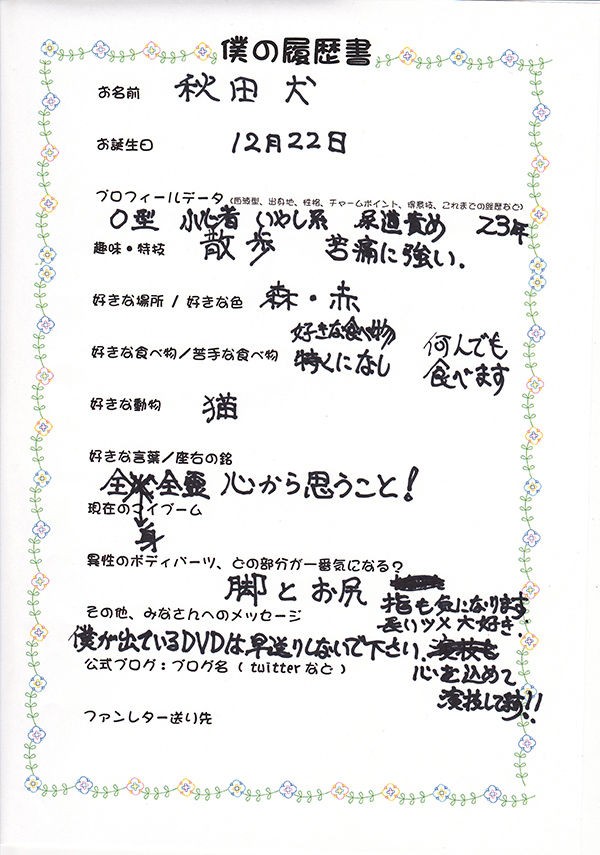 僕の履歴書
お名前 秋田犬
お誕生日 12月22日
プロフィールデータ(血液型、出身地、性格、チャームポイント、得意技、これまでの経歴など)
O型 小心者 いやし系 尿道責め 23年
趣味・特技 散歩 苦痛に強い.
好きな場所 / 好きな色 森・赤
好きな食べ物/苦手な食べ物 好きな食べ物 特になし 何んでも食べます
好きな動物 猫
好きな言葉/座右の銘
全 全霊 心から思うこと!
現在のマイブーム
身
異性のボディパーツ、どの部分が一番気になる?
脚とお尻 指も気になります
その他、みなさんへのメッセージ 長いツメ大好き.
僕が出ているDVDは早送りしないで下さい.
公式ブログ:ブログ名 ( twitterなど ) 心を込めて
演技してます!!
ファンレター送り先